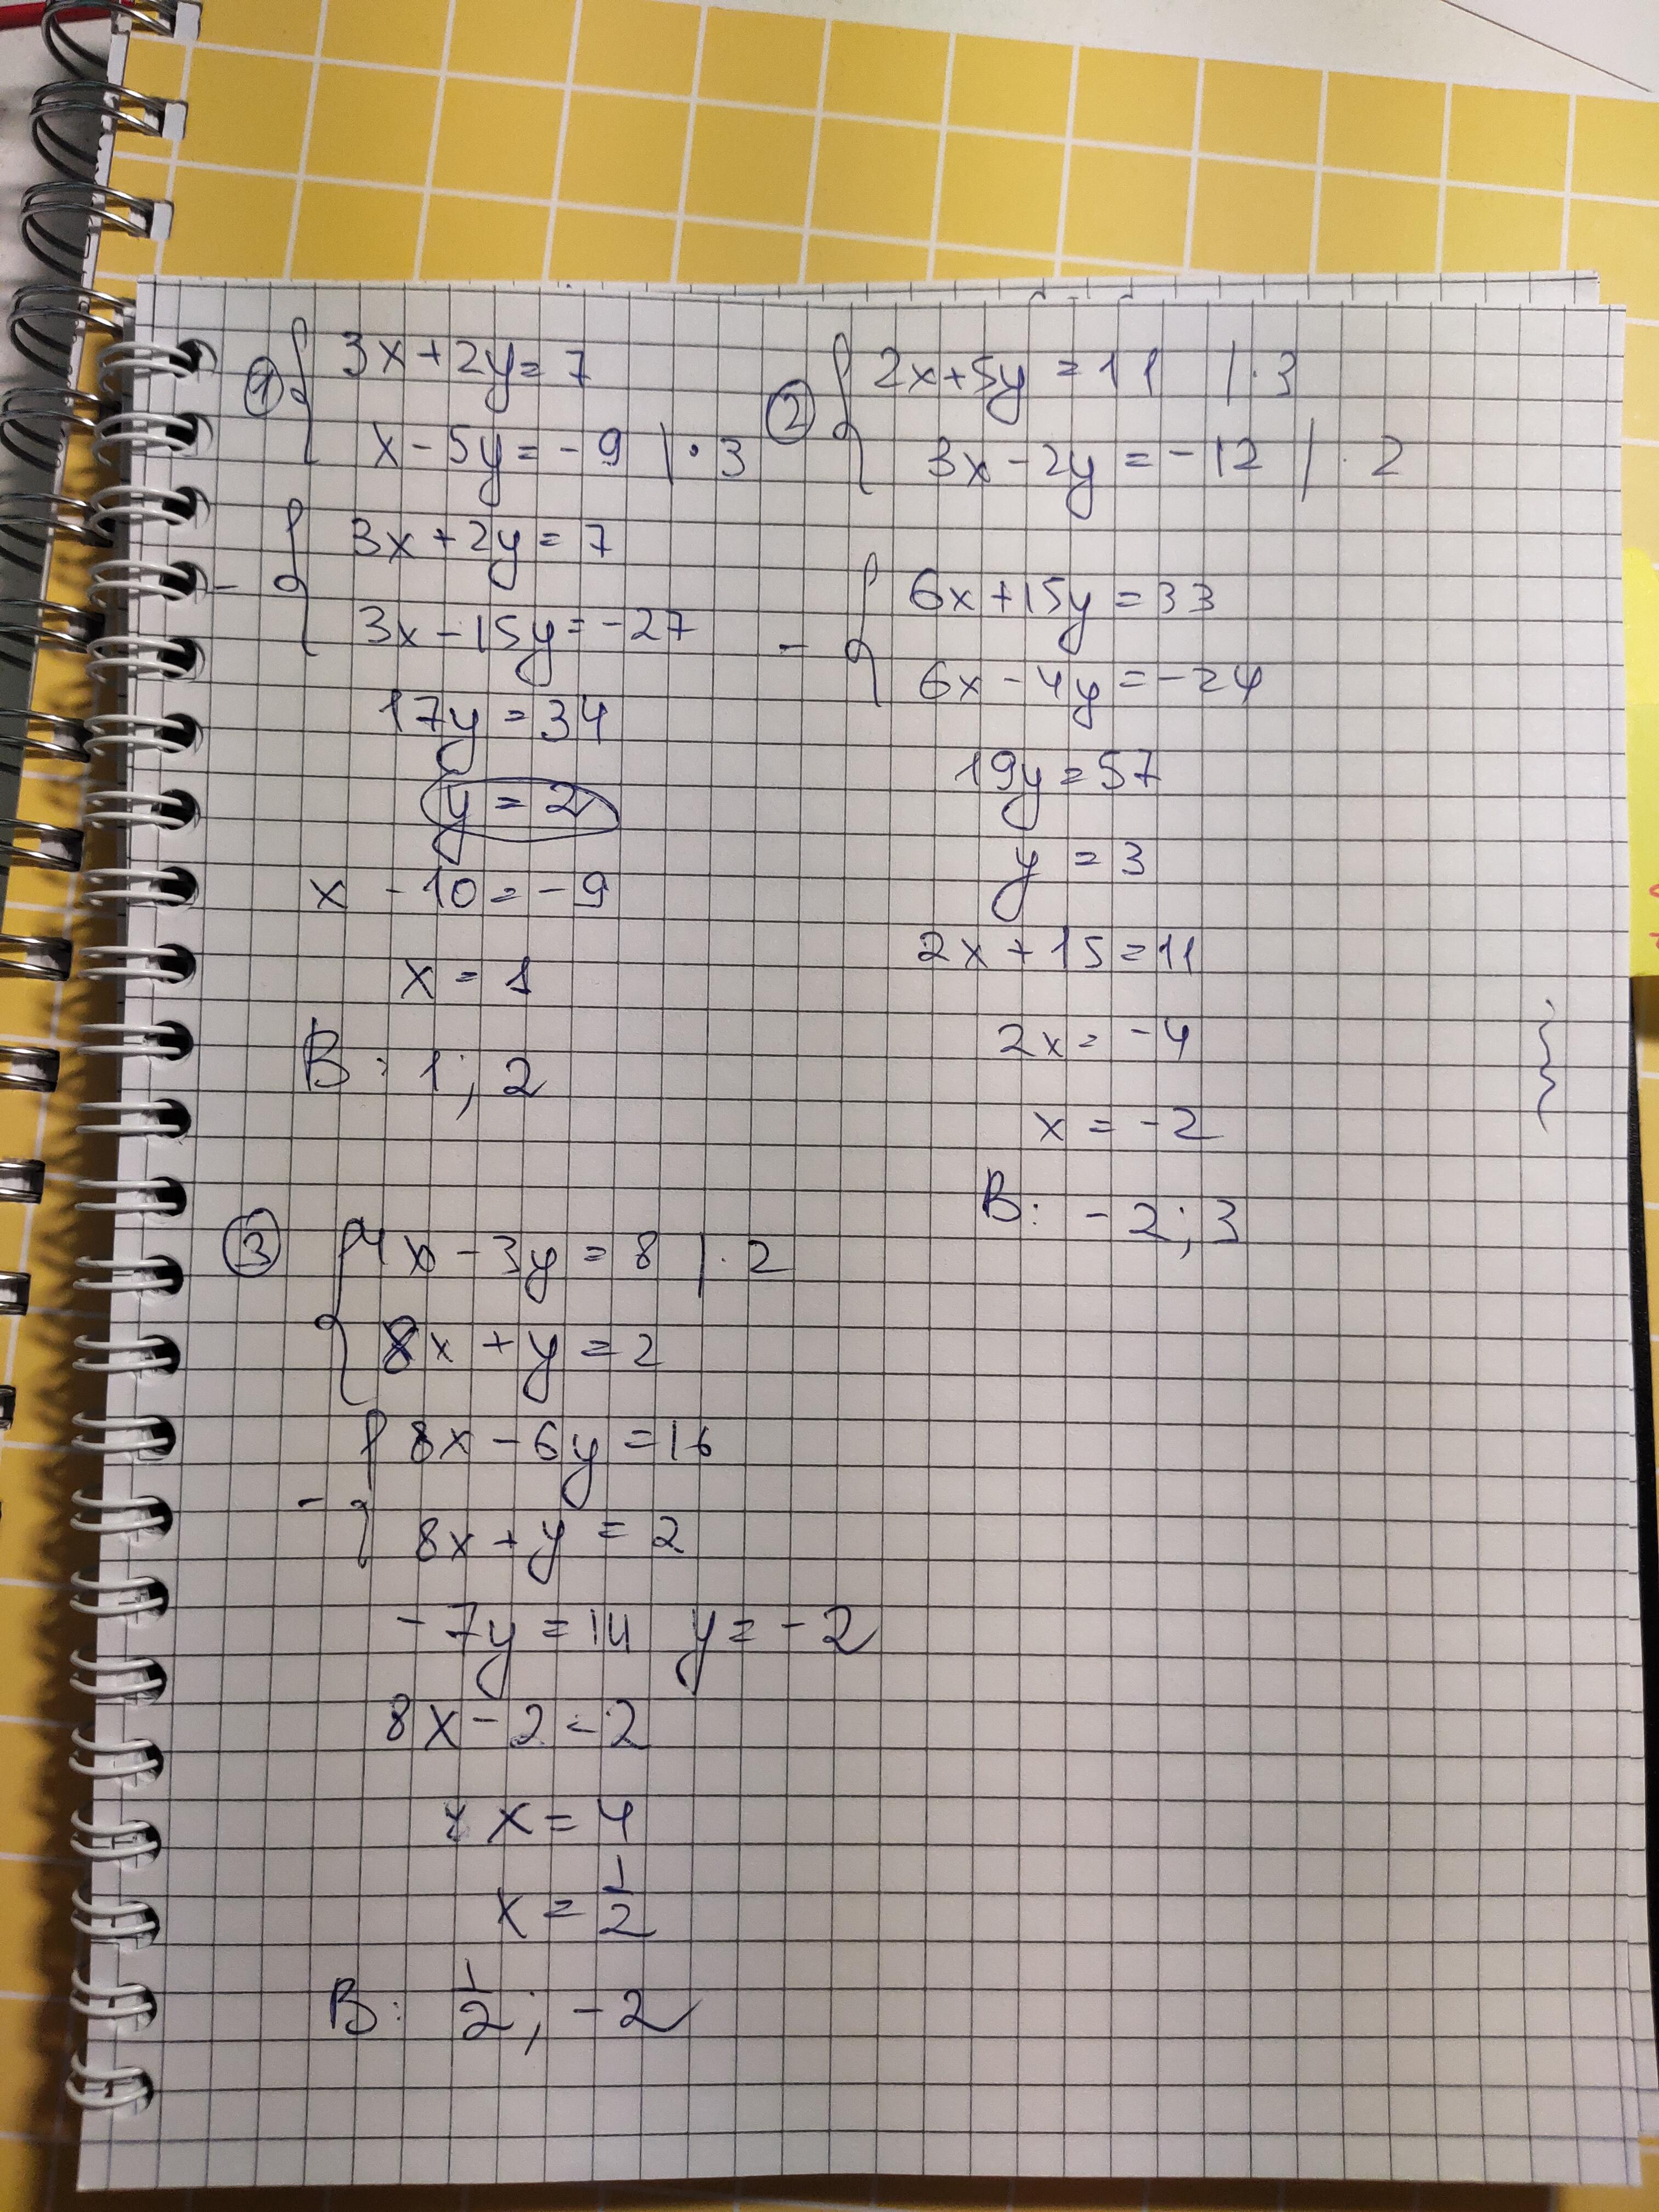 ① { 3x+2y=7
x-5y=-9 |·3
- { 3x+2y=7
3x-15y=-27
17y=34
y=2
x-10=-9
x=1
В: 1; 2
② { 2x+5y=11 |·3
3x-2y=-12 |·2
- { 6x+15y=33
6x-4y=-24
19y=57
y=3
2x+15=11
2x=-4
x=-2
В: -2; 3
③ { 4x-3y=8 |·2
8x+y=2
- { 8x-6y=16
8x+y=2
-7y=14 y=-2
8x-2=2
x=4
x=1/2
В: 1/2; -2